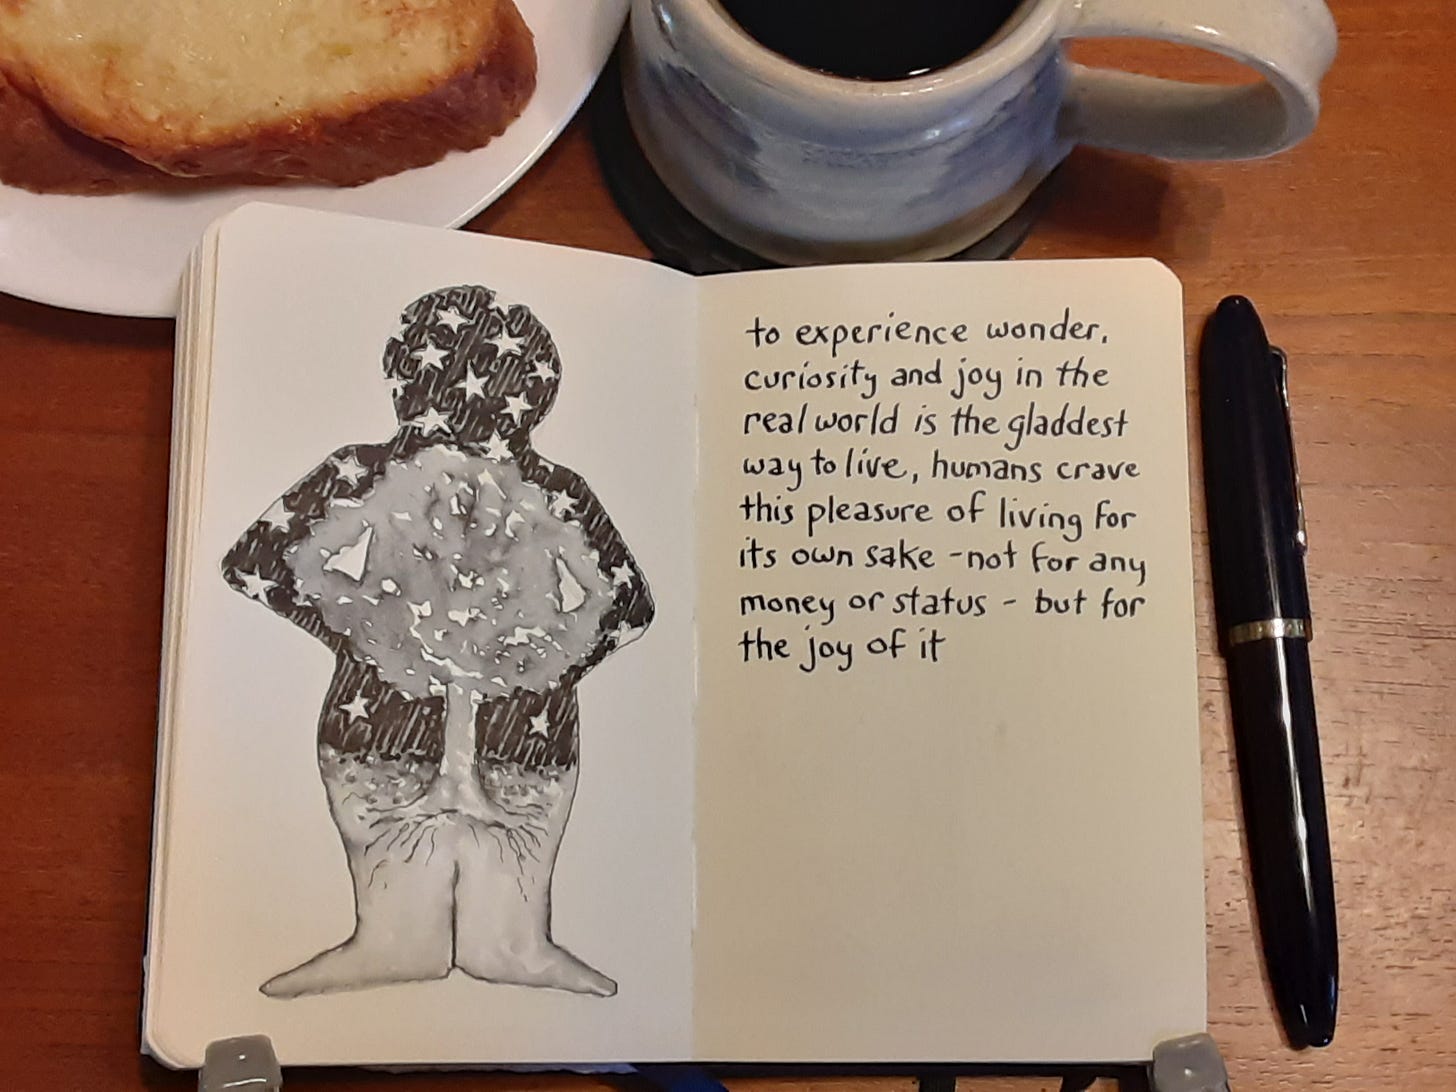 to experience wonder,
curiosity and joy in the
real world is the gladdest
way to live, humans crave
this pleasure of living for
its own sake - not for any
money or status - but for
the joy of it